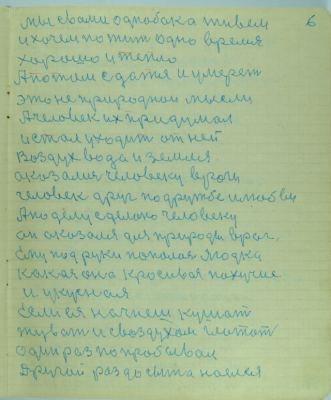 6
мы свами однобока живем
и хочем пожит одно время
хорошо и тепло
Апотом сдатя и умерет
это не природнои мысли
Ачеловек их придумал
и стал уходит от ней
Воздух вода и земля
оказался человеку враги
человек друг подружбе илюбви
Аподелу сделано человеку
он оказался для природы враг.
Ему под руки попалая Ягодка
какая она красивая пахучие
и укусная
Если ея начнеш кушат
жуват и своздухом глотот
один раз попробывал
Другой раз досыта наелся